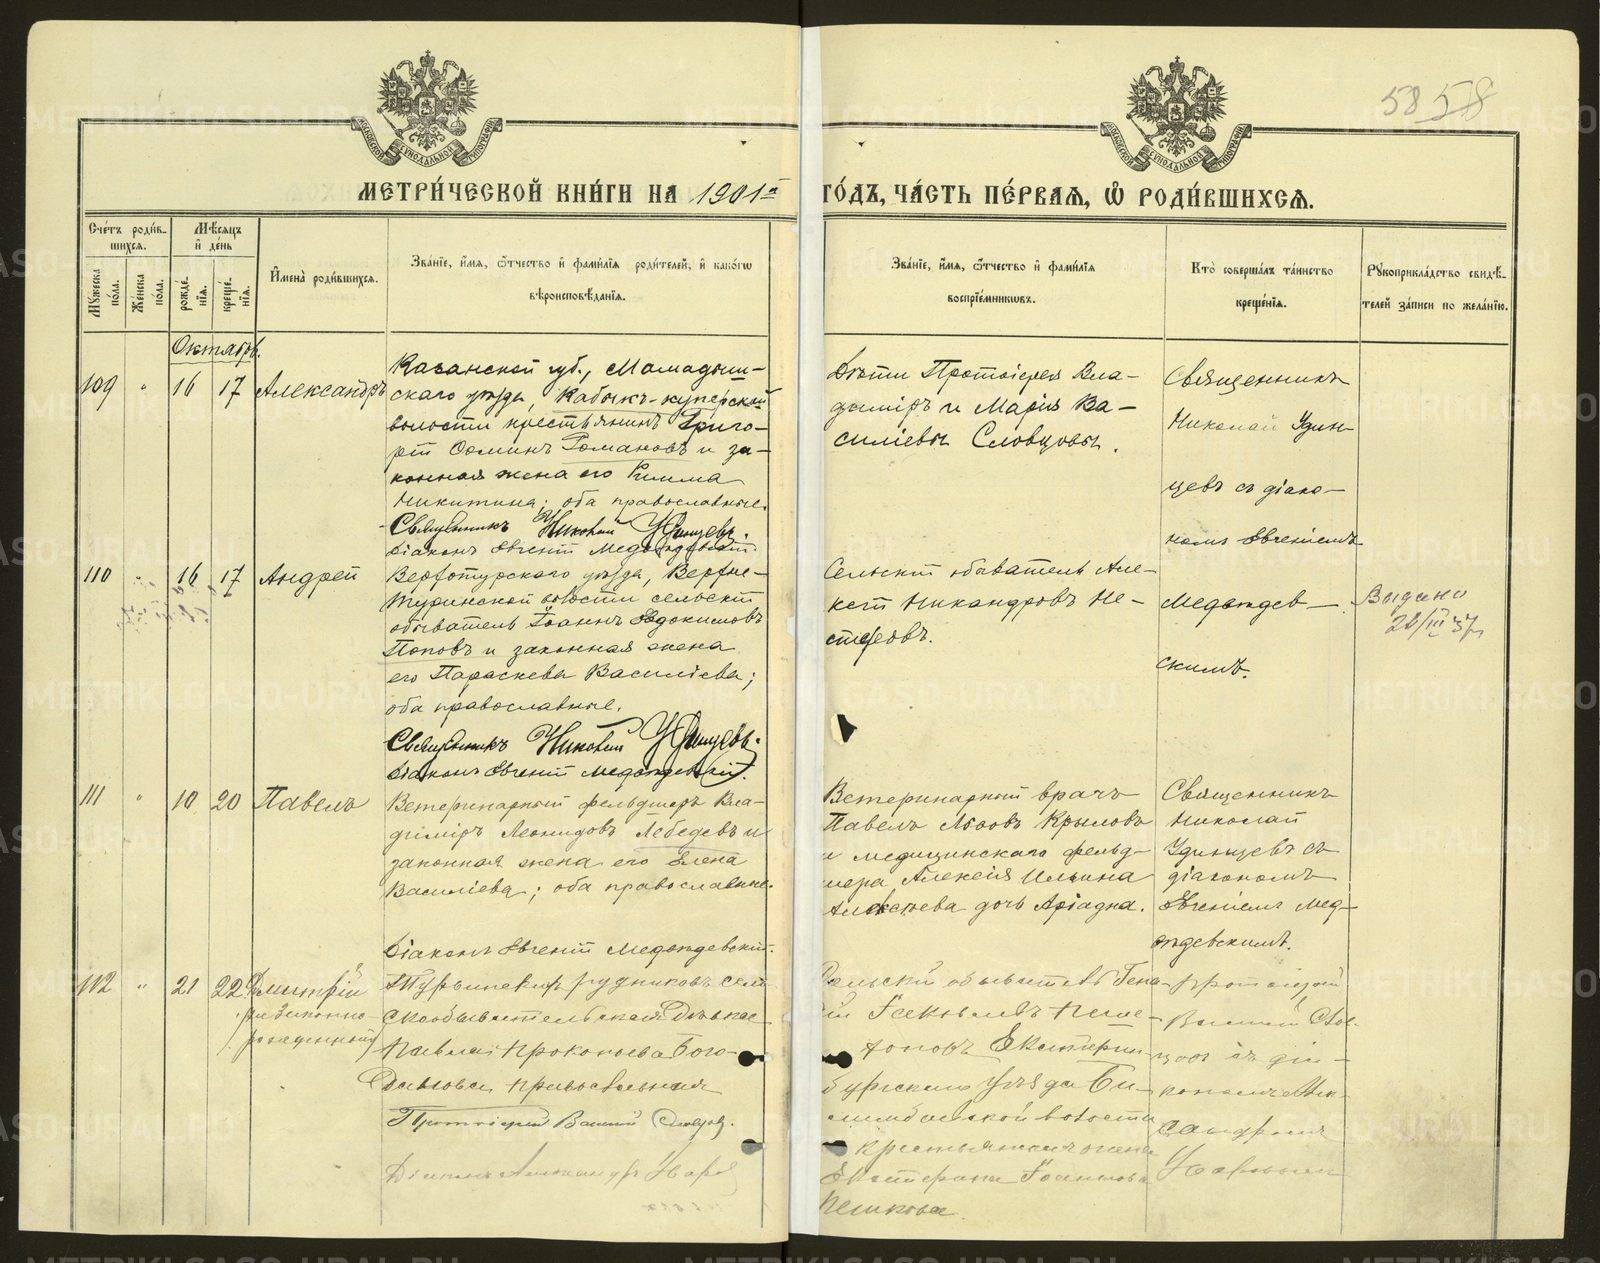 58 58
МОСКОВСКОЙ СУНОДАЛЬНОЙ ТИПОГРАФІИ
МОСКОВСКОЙ СУНОДАЛЬНОЙ ТИПОГРАФІИ
МЕТРИ́ЧЕСКОЙ КНИ́ГИ НА 1901й
ГО́ДЪ, ЧА́СТЬ ПЕ́РВАЯ, Ѽ РОДИ́ВШИХСЯ.
Сче́тъ роди́в-
шихся.
Мѣ́сяцъ
и҆ де́нь
Му́жеска по́ла.
Же́нска по́ла.
рожде́нїя.
креще́нїя.
И҆мена̀ роди́вшихся.
Зва́нїе, и҆́мя, ѻ҆́тчество и҆ фами́лїя роди́телей, и҆ како́гѡ
вѣроисповѣ́данїя.
Зва́нїе, и҆́мя, ѻ҆́тчество и҆ фами́лїя
воспрїе́мникѡвъ.
Кто̀ соверша́лъ та́инство
креще́нїя.
Рꙋкоприкла́дство свидѣ́-
телей за́писи по жела́нїю.
Октябрь.
109 " 16 17 Александръ
Казанской губ., Мамадыш-
скаго уѣзда, Кабыкъ-куперской
волости крестьянинъ Григо-
рій Ѳоминъ Романовъ и за-
конная жена его Римма
Никитина; оба православные.
Священникъ Николай Удинцевъ.
Діаконъ Евгеній Медвѣдевскій
Дѣти Протоіерея Вла-
диміръ и Марія Ва-
силіевы Словцовы.
Священникъ
Николай Удин-
цевъ съ діако-
номъ Евгеніемъ
110 " 16 17 Андрей
Верхотурскаго уѣзда, Верхне-
Туринской волости сельскій
обыватель Іоаннъ Евдокимовъ
Поповъ и законная жена
его Параскева Василіева;
оба православные.
Священникъ Николай Удинцевъ.
Діаконъ Евгеній Медвѣдевскій.
Сельскій обыватель Але-
ксѣй Никандровъ Не-
стеровъ.
Медвѣдев-
скимъ.
Выдано
22/III 37
111 " 10 20 Павелъ
Ветеринарный фельдшеръ Вла-
диміръ Леонидовъ Лебедевъ и
законная жена его Елена
Василіева; оба православные.
Діаконъ Евгеній Медвѣдевскій.
Ветеринарный врачъ
Павелъ Крыловъ
и медицинскаго фельд-
шера Алексія Ильина
Алексѣева дочь Аріадна.
Священникъ
Николай
Удинцевъ съ
діакономъ
Евгеніемъ Мед-
вѣдевскимъ.
112 " 21 22 Димитрій
незаконно-
рожденный
Турьинскихъ рудниковъ сель-
скообывательская дѣвка
Павла Прокопьева Бого-
православная
Протоіерей Василій Словцовъ.
Діаконъ Александръ
Сельскій обыватель
Іаковлевъ
Екатерин-
бургскаго уѣзда Би-
лимбаевской волости
крестьянская жена
Екатерина Іоаннова
Пешкова.
Протоіерей
Василій Слов-
цовъ съ діа-
кономъ Алек-
сандромъ